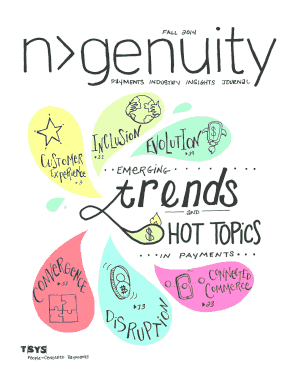 FALL 2014
n>genuity
PAYMENTS INDUSTRY INSIGHTS JOURNAL
INCLUSION
EVOLUTION
CUSTOMER
EXPERIENCE
...EMERGING...
trends
AND
HOT TOPICS
...IN PAYMENTS...
CONVERGENCE
DISRUPTION
CONNECTED
COMMERCE
TSYS
People-Centered Payments